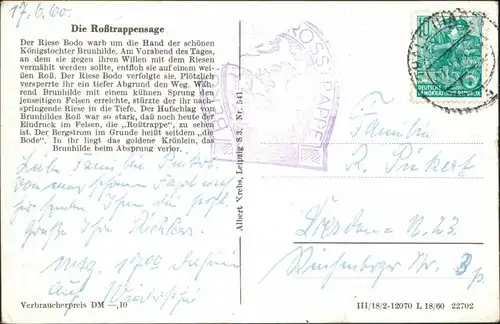 17.6.60.
Die Roßtrappensage
Der Riese Bodo warb um die Hand der schönen
Königstochter Brunhilde. Am Vorabend des Tages,
an dem sie gegen ihren Willen mit dem Riesen
vermählt werden sollte, entfloh sie auf einem wei-
ßen Roß. Der Riese Bodo verfolgte sie. Plötzlich
versperrte ihr ein tiefer Abgrund den Weg. Wäh-
rend Brunhilde mit einem kühnen Sprung den
jenseitigen Felsen erreichte, stürzte der ihr nach-
springende Riese in die Tiefe. Der Hufschlag von
Brunhildes Roß war so stark, daß noch heute der
Eindruck im Felsen, die „Roßtrappe“, zu sehen
ist. Der Bergstrom im Grunde heißt seitdem „die
Bode“. In ihr liegt das goldene Krönlein, das
Brunhilde beim Absprung verlor.
Liebe Familie Pinkert
Grüße Ihre
17.00
Auf Wiedersehn
Verbraucherpreis DM —,10
Albert Krebs, Leipzig S 3, Nr. 541
ROSSTRAPPE
10
DEUTSCHE
DEMOKRATISCHE REPUBLIK
Familie
R. Pinkert
Dresden N. 23
Str. 3
III/18/2-12070 L 18/60 22702